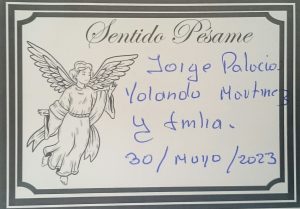 Sentido Pésame
Jorge Palacio.
Yolanda Martinez
y fmlia.
30/Mayo/2023